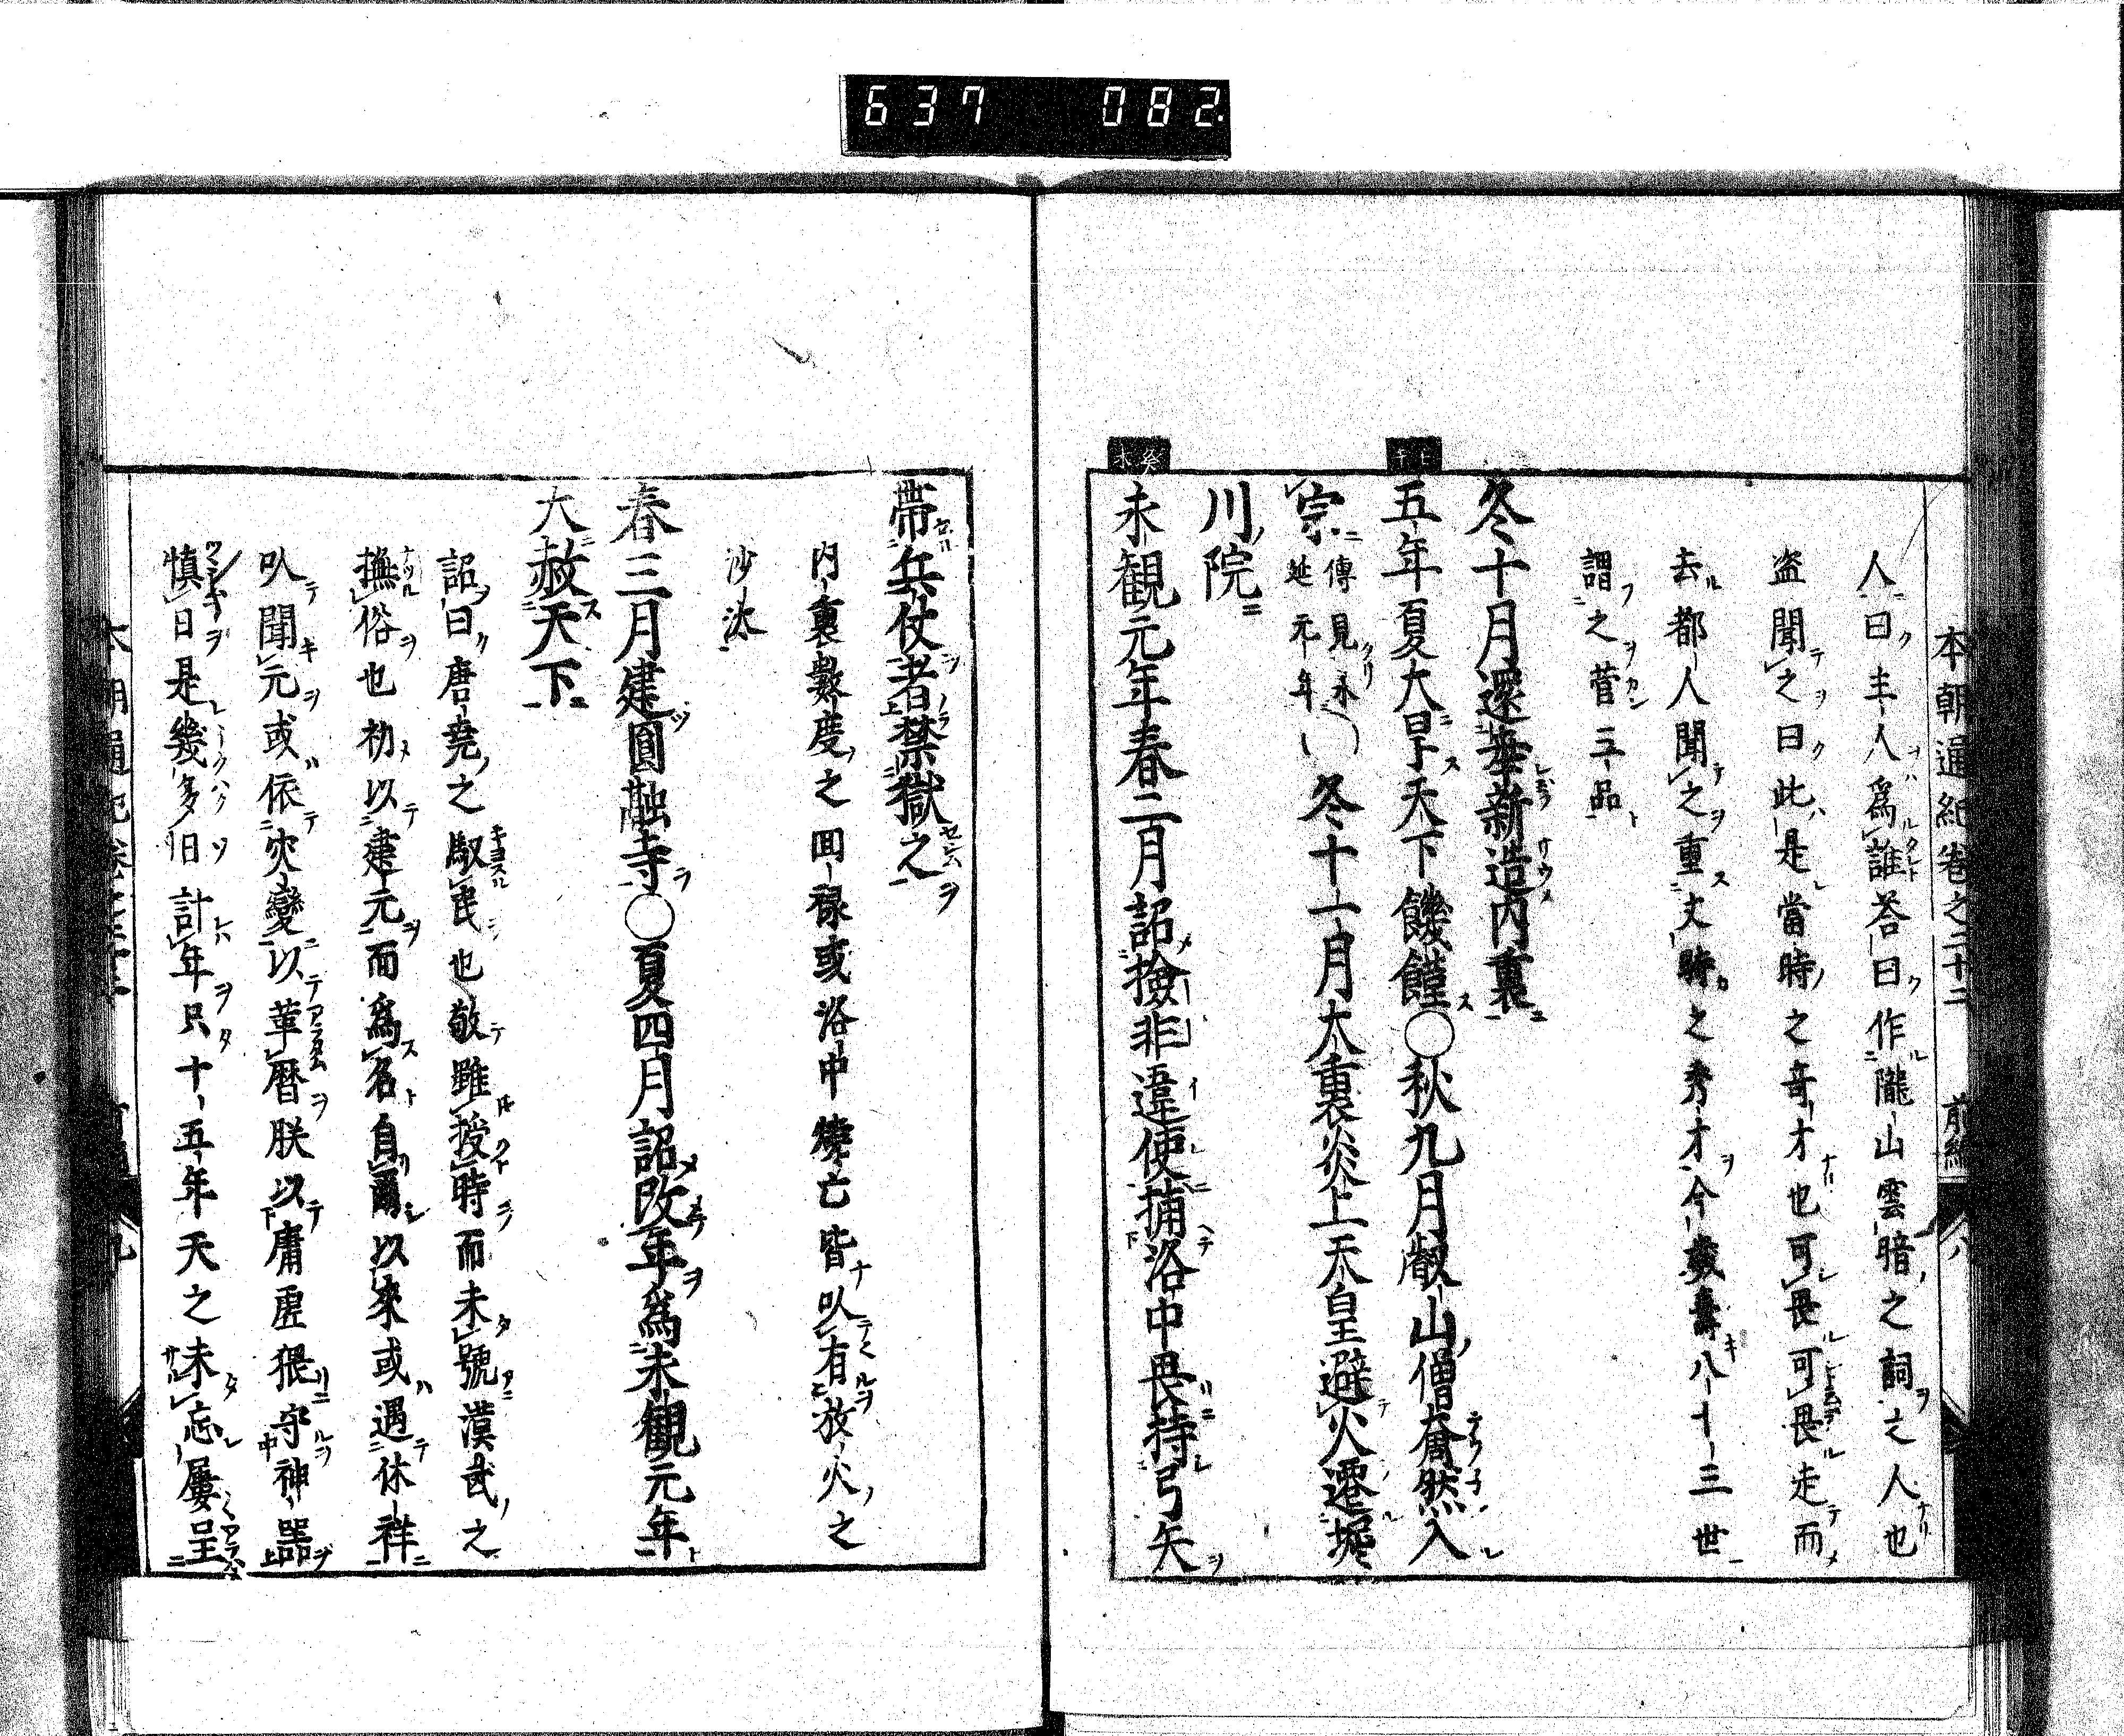 637 082
本朝通紀卷之二十二 前編 八
人曰主人爲誰荅曰作隴山雲暗之詞之人也
盗聞之曰此是當時之竒才也可畏可畏走而
去都人聞之重文時之秀才今歳壽八十三世
謂之菅三品
冬十月還幸新造内裏
壬午
五年夏大旱天下饑饉○秋九月叡山僧奝然入
宗 傳見永延元年 ○冬十一月大裏炎上天皇避火遷堀
川院
癸未
永観元年春二月詔撿非違使捕洛中畏持弓矢
帶兵仗者禁獄之
内裏數度之囬禄或洛中燒亡皆以有放火之
沙汰
春三月建圓融寺○夏四月詔改年爲永観元年
大赦天下
詔曰唐堯之馭民也敬雖授時而未號漢武之
撫俗也初以建元而爲名自爾以來或遇休祥
以開元或依灾變以革暦朕以庸虛猥守神器
慎日是幾多旧計年只十五年天之未忘屢呈